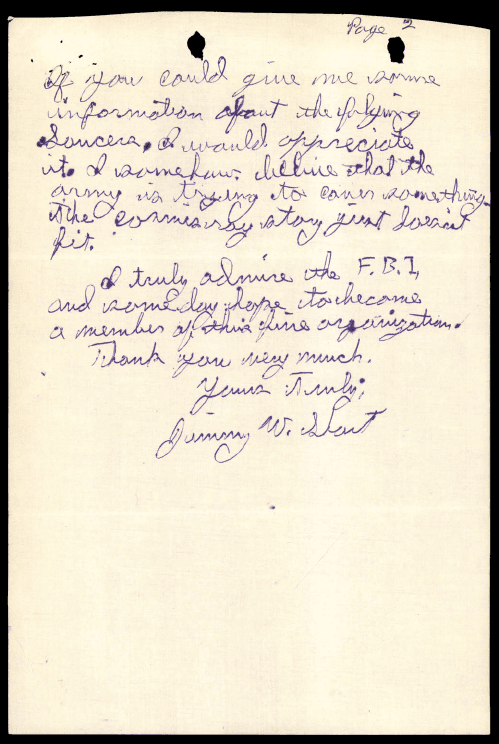 Page 2
If you could give me some
information about the flying
Soucers, I would appreciate
it. I somehow belive that the
army is trying to cover something
the cosmis ray story just doesn't
fit.
I truly admire the F.B.I,
and someday hope to become
a member of this fine organization.
Thank you very much.
Yours truly,
Jimmy W.